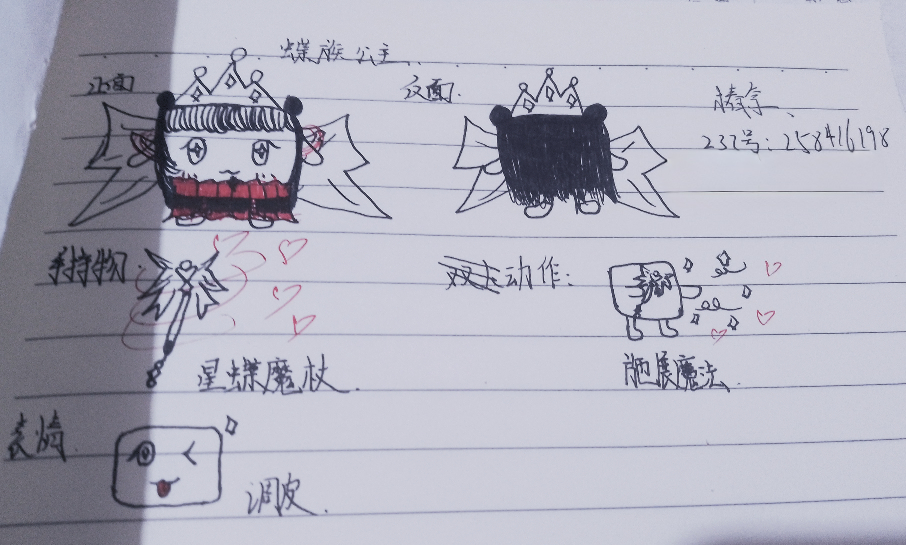 蝶族公主
正面
反面
滕奈
232号:258416198
手持物:
动作:
星蝶魔杖
施展魔法
表情
调皮